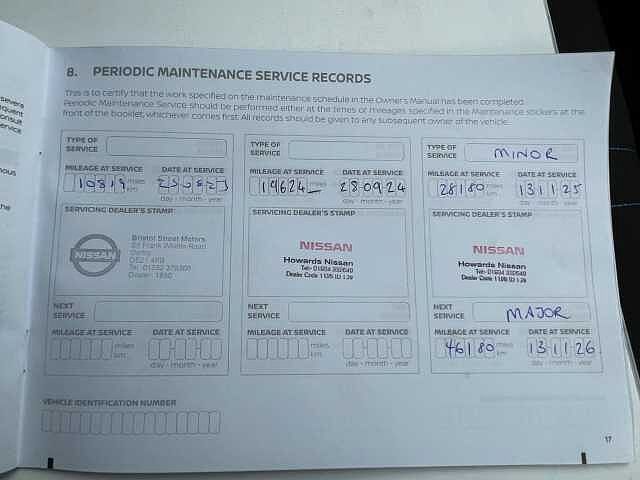 8. PERIODIC MAINTENANCE SERVICE RECORDS
This is to certify that the work specified on the maintenance schedule in the Owner's Manual has been completed.
Periodic Maintenance Service should be performed either at the times or mileages specified in the Maintenance stickers at the
front of the booklet, whichever comes first. All records should be given to any subsequent owner of the vehicle.
TYPE OF
SERVICE
MILEAGE AT SERVICE DATE AT SERVICE
10819 miles 230823
km day - month - year
SERVICING DEALER'S STAMP
NISSAN
Bristol Street Motors
Derby
NEXT
SERVICE
MILEAGE AT SERVICE DATE AT SERVICE
miles
km day - month - year
TYPE OF
SERVICE
MILEAGE AT SERVICE DATE AT SERVICE
19624 miles 280924
day - month - year
SERVICING DEALER'S STAMP
NISSAN
Howards Nissan
NEXT
SERVICE
MILEAGE AT SERVICE DATE AT SERVICE
miles
km day - month - year
TYPE OF
SERVICE MINOR
MILEAGE AT SERVICE DATE AT SERVICE
28180 miles 131125
km day - month - year
SERVICING DEALER'S STAMP
NISSAN
Howards Nissan
NEXT
SERVICE MAJOR
MILEAGE AT SERVICE DATE AT SERVICE
46180 miles 131126
km day - month - year
VEHICLE IDENTIFICATION NUMBER
17